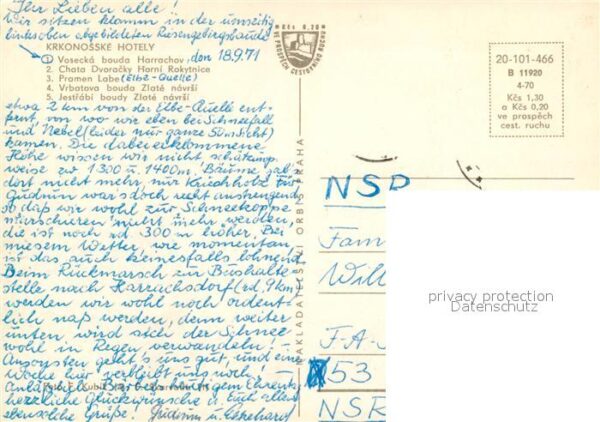 Ihr Lieben alle!
Wir sitzen klamm in der umseitig
linksoben abgebildeten Riesengebirgsbaude
KRKONOŠSKÉ HOTELY
1. Vosecká bouda Harrachov, den 18.9.71
2. Chata Dvoračky Horní Rokytnice
3. Pramen Labe (Elbe-Quelle)
4. Vrbatova bouda Zlaté návrší
5. Jestřábí boudy Zlaté návrší
etwa 2 km von der Elbe-Quelle ent-
fernt, von wo wir eben bei Schneefall
und Nebel (leider nur ganze 50 m Sicht)
kamen. Die dabei erklommene
Höhe wissen wir nicht, schätzungs-
weise zw 1300 u. 1400m. Bäume gab's
dort nicht mehr, nur Kriechholz. Für
Gudrun war's doch recht anstrengend
so daß wir wohl zur Schneekoppe
marschieren nicht mehr werden,
die ist noch rd 300 m höher. Bei
miesem Wetter, wie momentan,
ist das auch keinesfalls lohnend.
Beim Rückmarsch zur Bushalte-
stelle nach Harrachsdorf (rd. 9 km)
werden wir wohl noch ordent-
lich naß werden, denn weiter
unten wird sich der Schnee
wohl in Regen verwandeln! –
Ansonsten geht's uns gut, und eine
Woche hier verbleibt uns noch! –
herzliche Glückwünsche u. Euch allen
ebensolche Grüße! Gudrun u. Ekkehard
Kčs 0,20
VE PROSPĚCH CESTOVNÍHO RUCHU
NAKLADATELSTVÍ ORBIS PRAHA
20-101-466
B 11920
4-70
Kčs 1,30
a Kčs 0,20
ve prospěch
cest. ruchu
NSR
Fam
Will
privacy protection
Datenschutz
F-A-
53
NSR